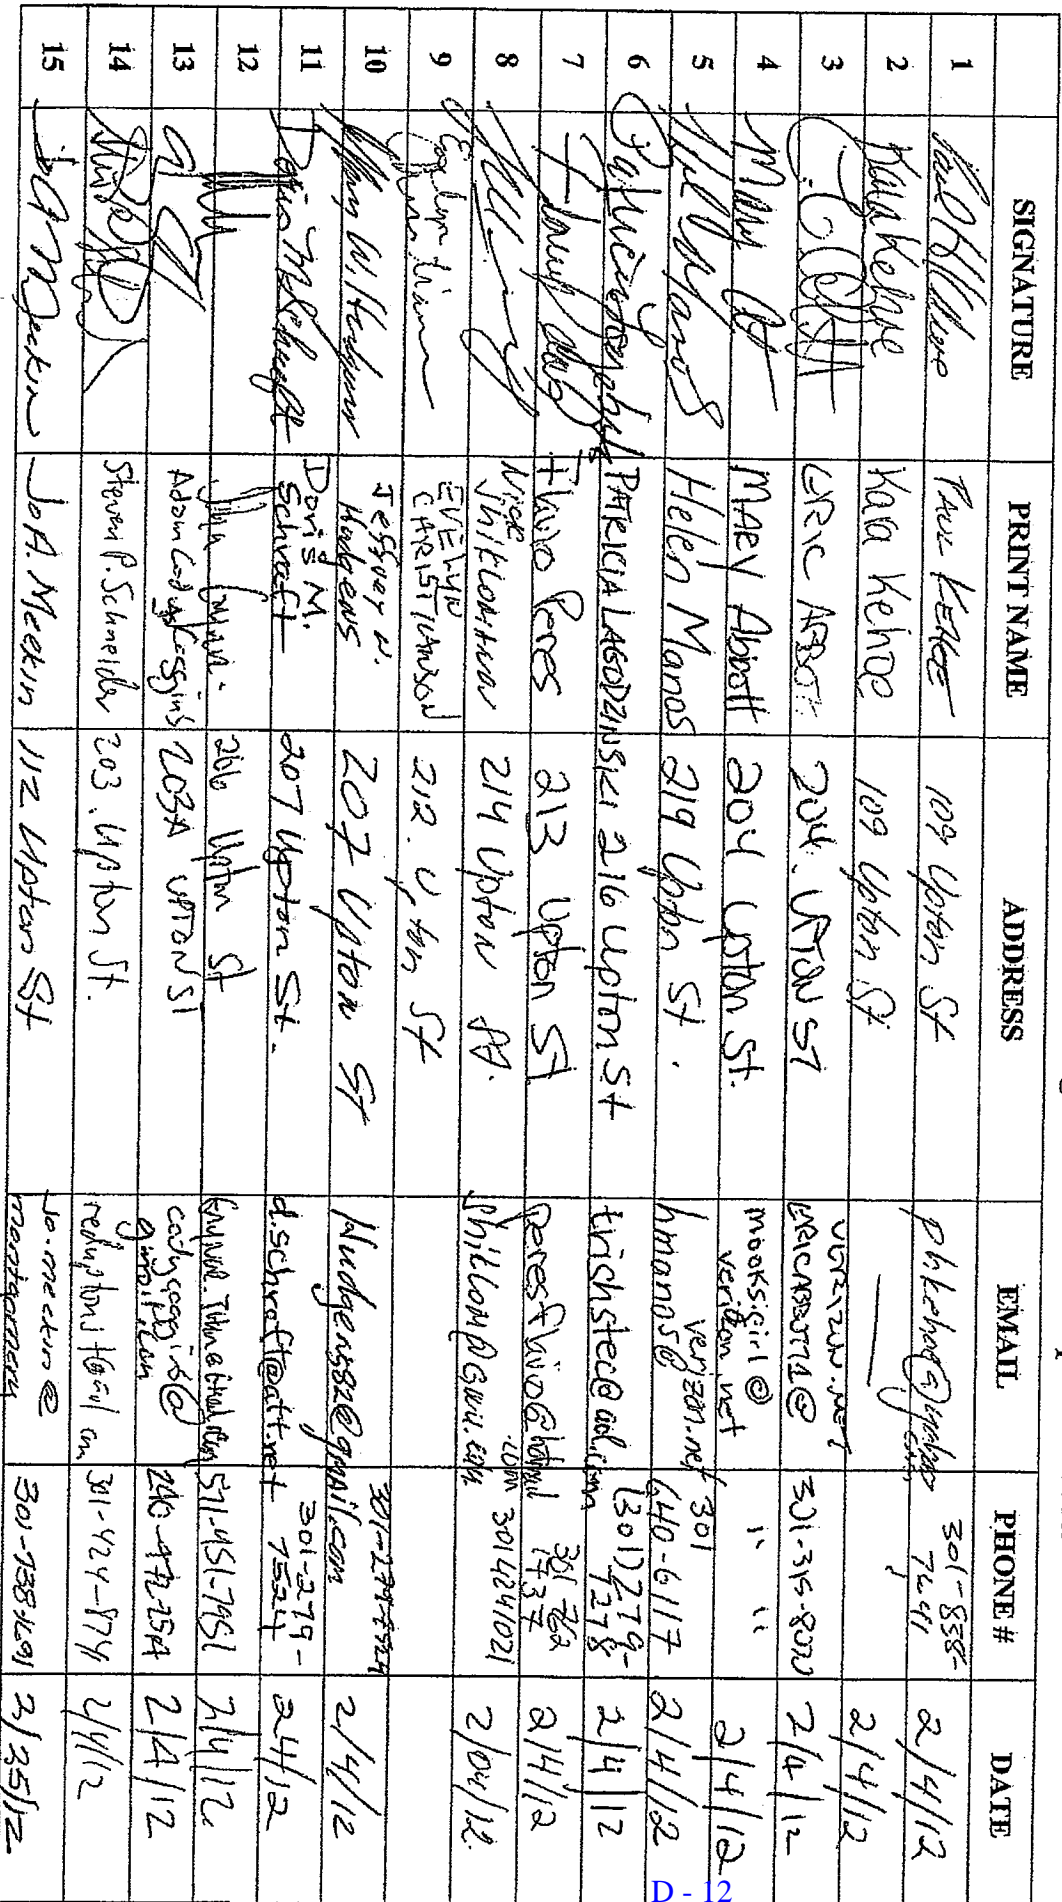 SIGNATURE PRINT NAME ADDRESS EMAIL PHONE # DATE
1 PAUL KEHOE 109 Upton St 301-838-7641 2/4/12
2 Kara Kehoe Kara Kehoe 109 Upton St — 2/4/12
3 ERIC ABBOTT 204 UPTON ST ERICABBOTT71@ VERIZON.NET 301-315-8020 2/4/12
4 MARY Abbott 204 Upton St. mooksigirl@ verizon.net " " 2/4/12
5 Helen Manos 219 Upton St. hmanos@ verizon.net 301 640-6117 2/4/12
6 PATRICIA LAGODZINSKI 216 Upton St trichstec@aol.com (301) 279-7278 2/4/12
7 Flavio Peres 213 Upton St peresflavio@hotmail .com 301-762 1737 2/4/12
8 214 Upton 3014241021 2/04/12.
9 EVELYN CHRISTIANSON 212. Upton St
10 Jeffrey W. Hudgens 207 Upton St Hudgens82@gmail.com 2/4/12
11 Doris M. Schraft Doris M. Schraft 207 Upton St. d.schraft@att.net 301-279-7524 2/4/12
12 206 Upton St 571-451-7951 2/4/12
13 Adam Cody Coggins 203A UPTON ST codycoggins@ gmail.com 2/4/12
14 Steven P. Schneider 203. Upton St. 301-424-8744 2/4/12
15 Jo A. Meekin Jo A. Meekin 112 Upton St jo.meekin@ montgomery 301-738-1691 2/25/12
D - 12